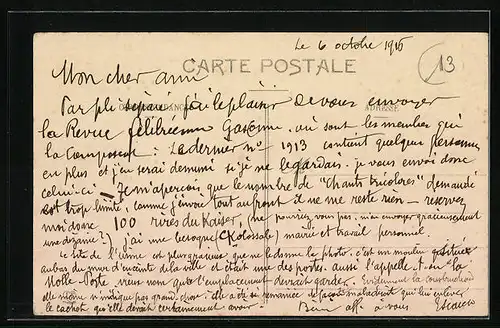 Le 6 octobre 1915
CARTE POSTALE
13
Mon cher ami
Par pli séparé j'ai le plaisir de vous envoyer
ADRESSE
la Revue félibréenne Gasconne, où sont les membres qui
la composent. Le dernier nº 1913 contient quelques personnes
en plus et j'en serai démuni si je ne le gardais. je vous envoi donc
celui-ci — Je m'aperçois que le nombre de "chants tricolores" demandé
est trop limité, comme j'envoie tout au front il ne me reste rien — reservez
m'en donc 100 rires du Kaiser, (ne pourriez vous pas, m'en envoyer gracieusement
une dizaine?) j'ai une besogne (Kolossale) mairie et travail personnel.
Le site de l'usine est plus gracieux que ne le donne la photo, c'est un moulin
au bas du mur d'enceinte de la ville et c'était une des portes. aussi l'appelle-t-on la
Molle Porte vieux nom que l'emplacement devrait garder. Evidemment la construction
elle même n'indique pas grand chose: elle a été si remaniée de façon maladroite qui lui enlève
le cachet qu'elle devait certainement avoir. Bien aff. à vous